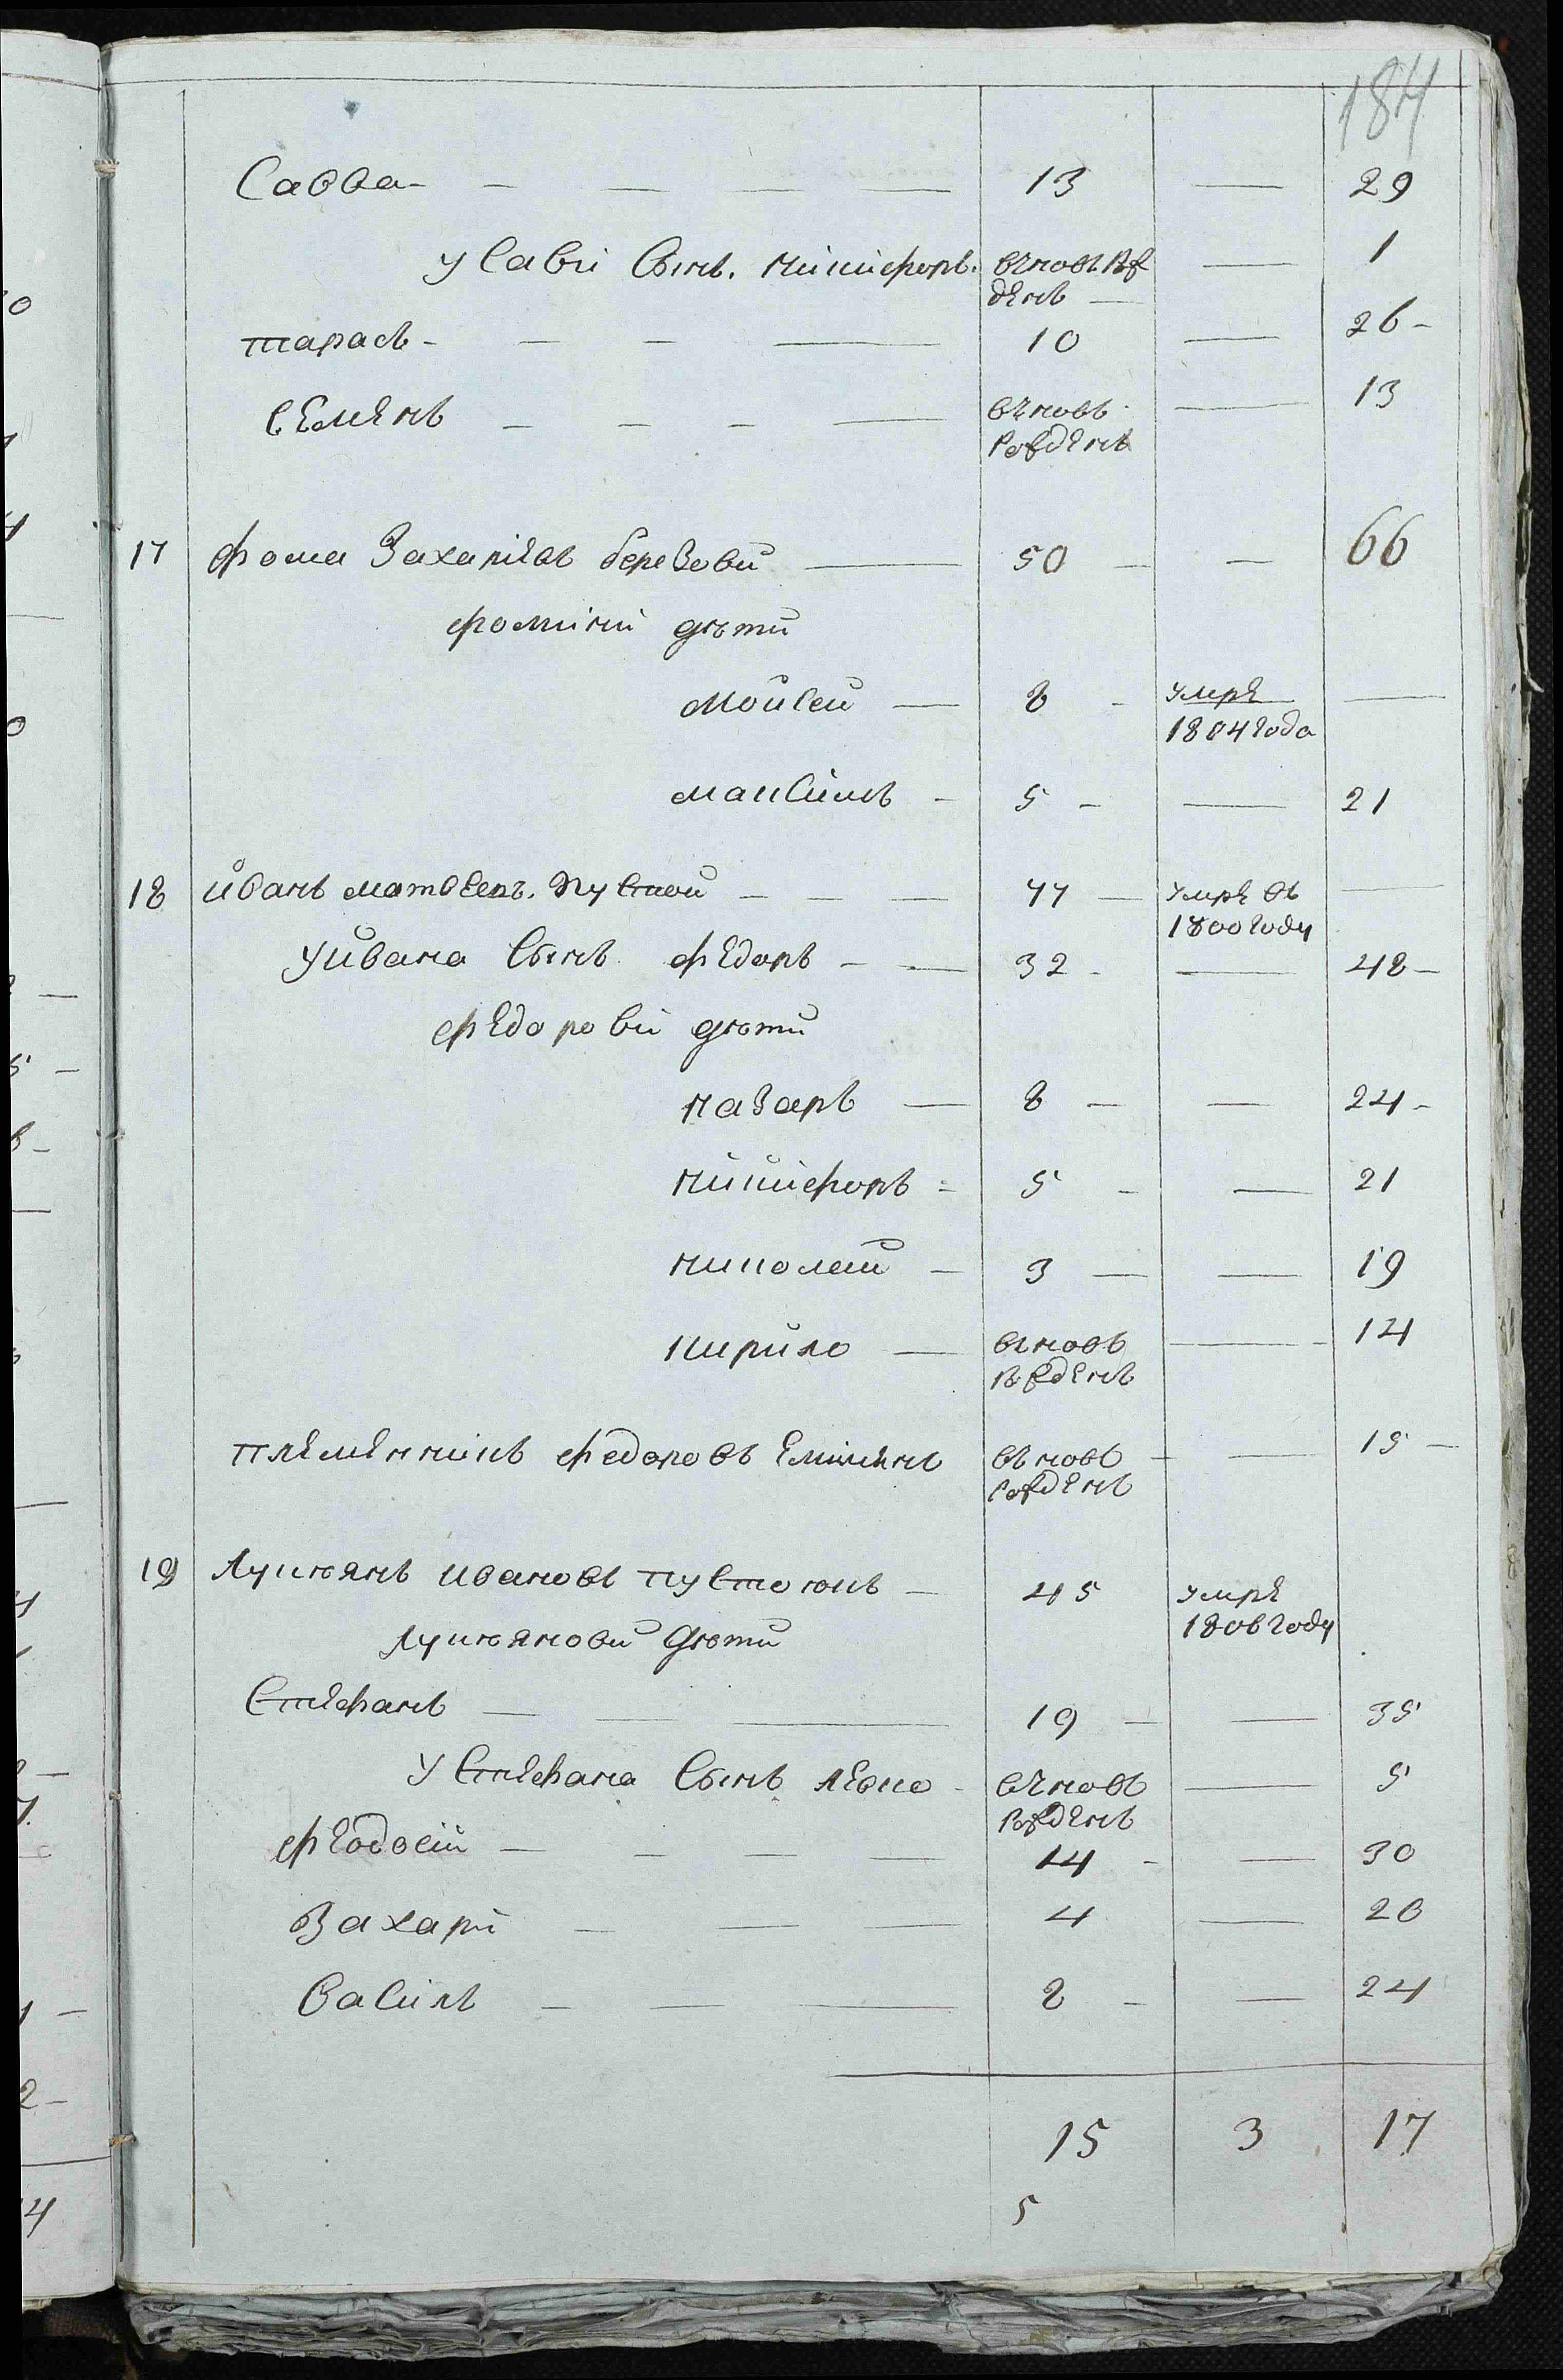 184
Савва 13 29
у Сави Сынъ. Никифоръ. вьновь рож 1
денъ
тарасъ 10 26
семенъ вьновь 13
рожденъ
17 фома Захариевъ березовий 50 66
фомини дѣти
мойсей 8 умре
1804 года
максимъ 5 21
18 йванъ матвеевъ. пустой 77 умре въ
1800 году
у йвана сынъ федоръ 32 48
федорови дѣти
назаръ 8 24
никифоръ 5 21
николай 3 19
кирило вьновь 14
рожденъ
племенникъ федоровъ емилиянъ вьновь 15
рожденъ
19 Лукьянъ ивановъ пустоюкъ 45 умре
1806 году
лукьянови дѣти
Степанъ 19 35
у Степана сынъ левко вьновь 5
рожденъ
феодосій 14 30
Захарій 4 20
Василь 8 24
15 3 17
5